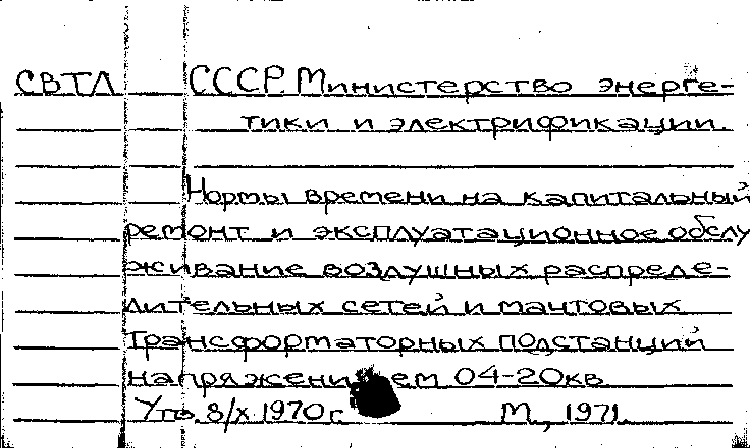 СВТЛ СССР Министерство энерге-
тики и электрификации.
Нормы времени на капитальный
ремонт и эксплуатационное обслу
живание воздушных распреде-
лительных сетей и мачтовых
трансформаторных подстанций
напряжением 04-20кв
Утв. 8/х 1970г. М., 1971.